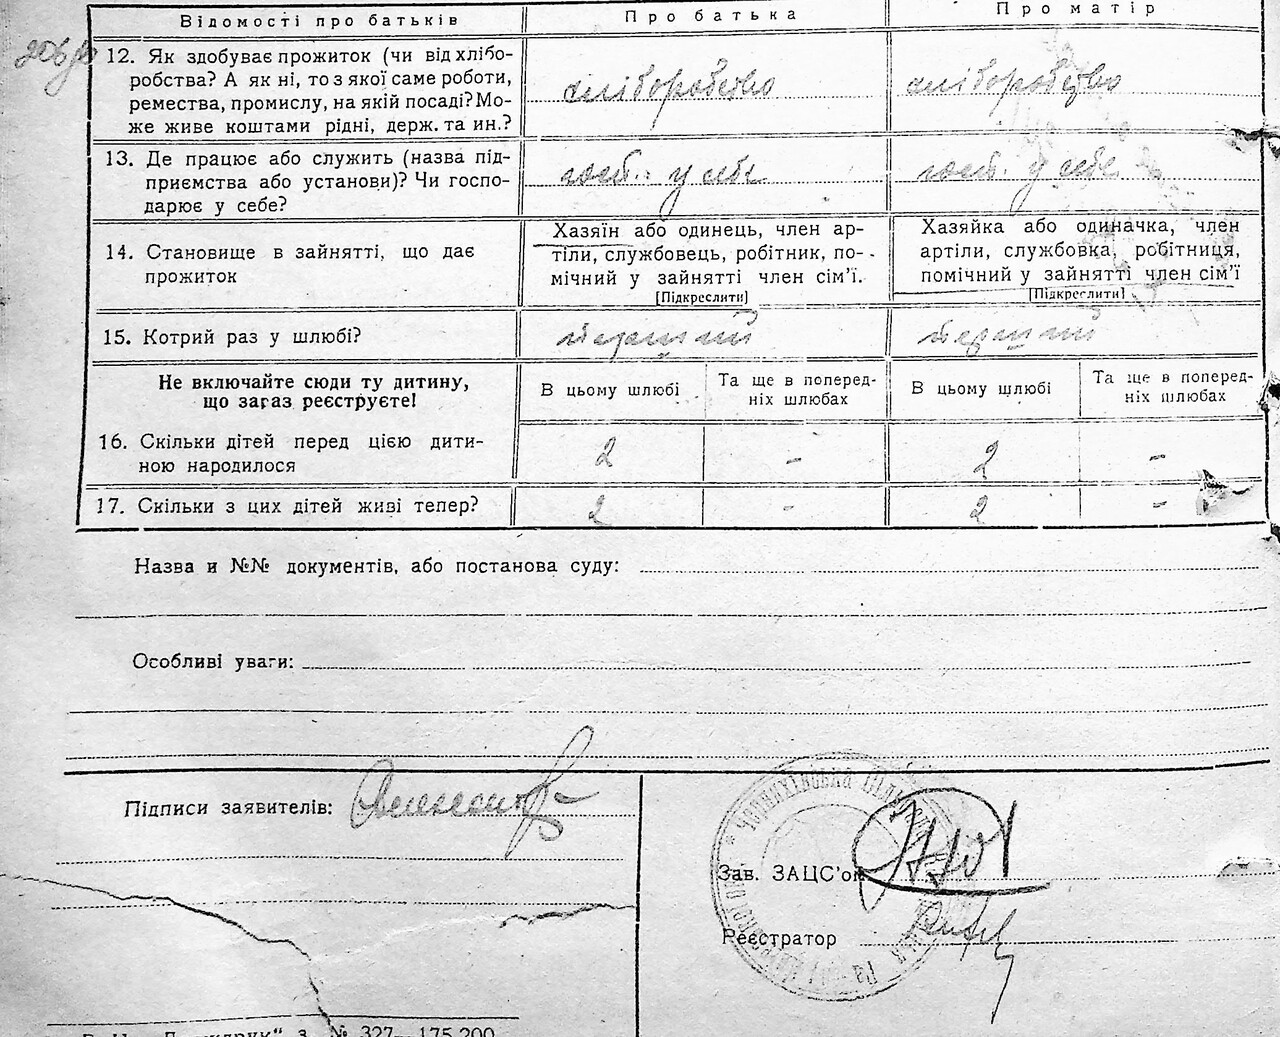 Відомості про батьків
Про батька
Про матір
12. Як здобуває прожиток (чи від хлібо-
робства? А як ні, то з якої саме роботи,
ремества, промислу, на якій посаді? Мо-
же живе коштами рідні, держ. та ин.?
хліборобство
хліборобство
13. Де працює або служить (назва під-
приємства або установи)? Чи госпо-
дарює у себе?
госп. у себе
госп. у себе
14. Становище в зайнятті, що дає
прожиток
Хазяїн або одинець, член ар-
тіли, службовець, робітник, по-
мічний у зайнятті член сім’ї.
[Підкреслити]
Хазяйка або одиначка, член
артіли, службовка, робітниця,
помічний у зайнятті член сім’ї
[Підкреслити]
15. Котрий раз у шлюбі?
перший
перший
Не включайте сюди ту дитину,
що зараз реєструєте!
В цьому шлюбі
Та ще в поперед-
ніх шлюбах
В цьому шлюбі
Та ще в поперед-
ніх шлюбах
16. Скільки дітей перед цією дити-
ною народилося
2
-
2
-
17. Скільки з цих дітей живі тепер?
2
-
2
-
Назва и №№ документів, або постанова суду:
Особливі уваги:
Підписи заявителів:
Зав. ЗАЦС’ом
Реєстратор
№ 327—175.200